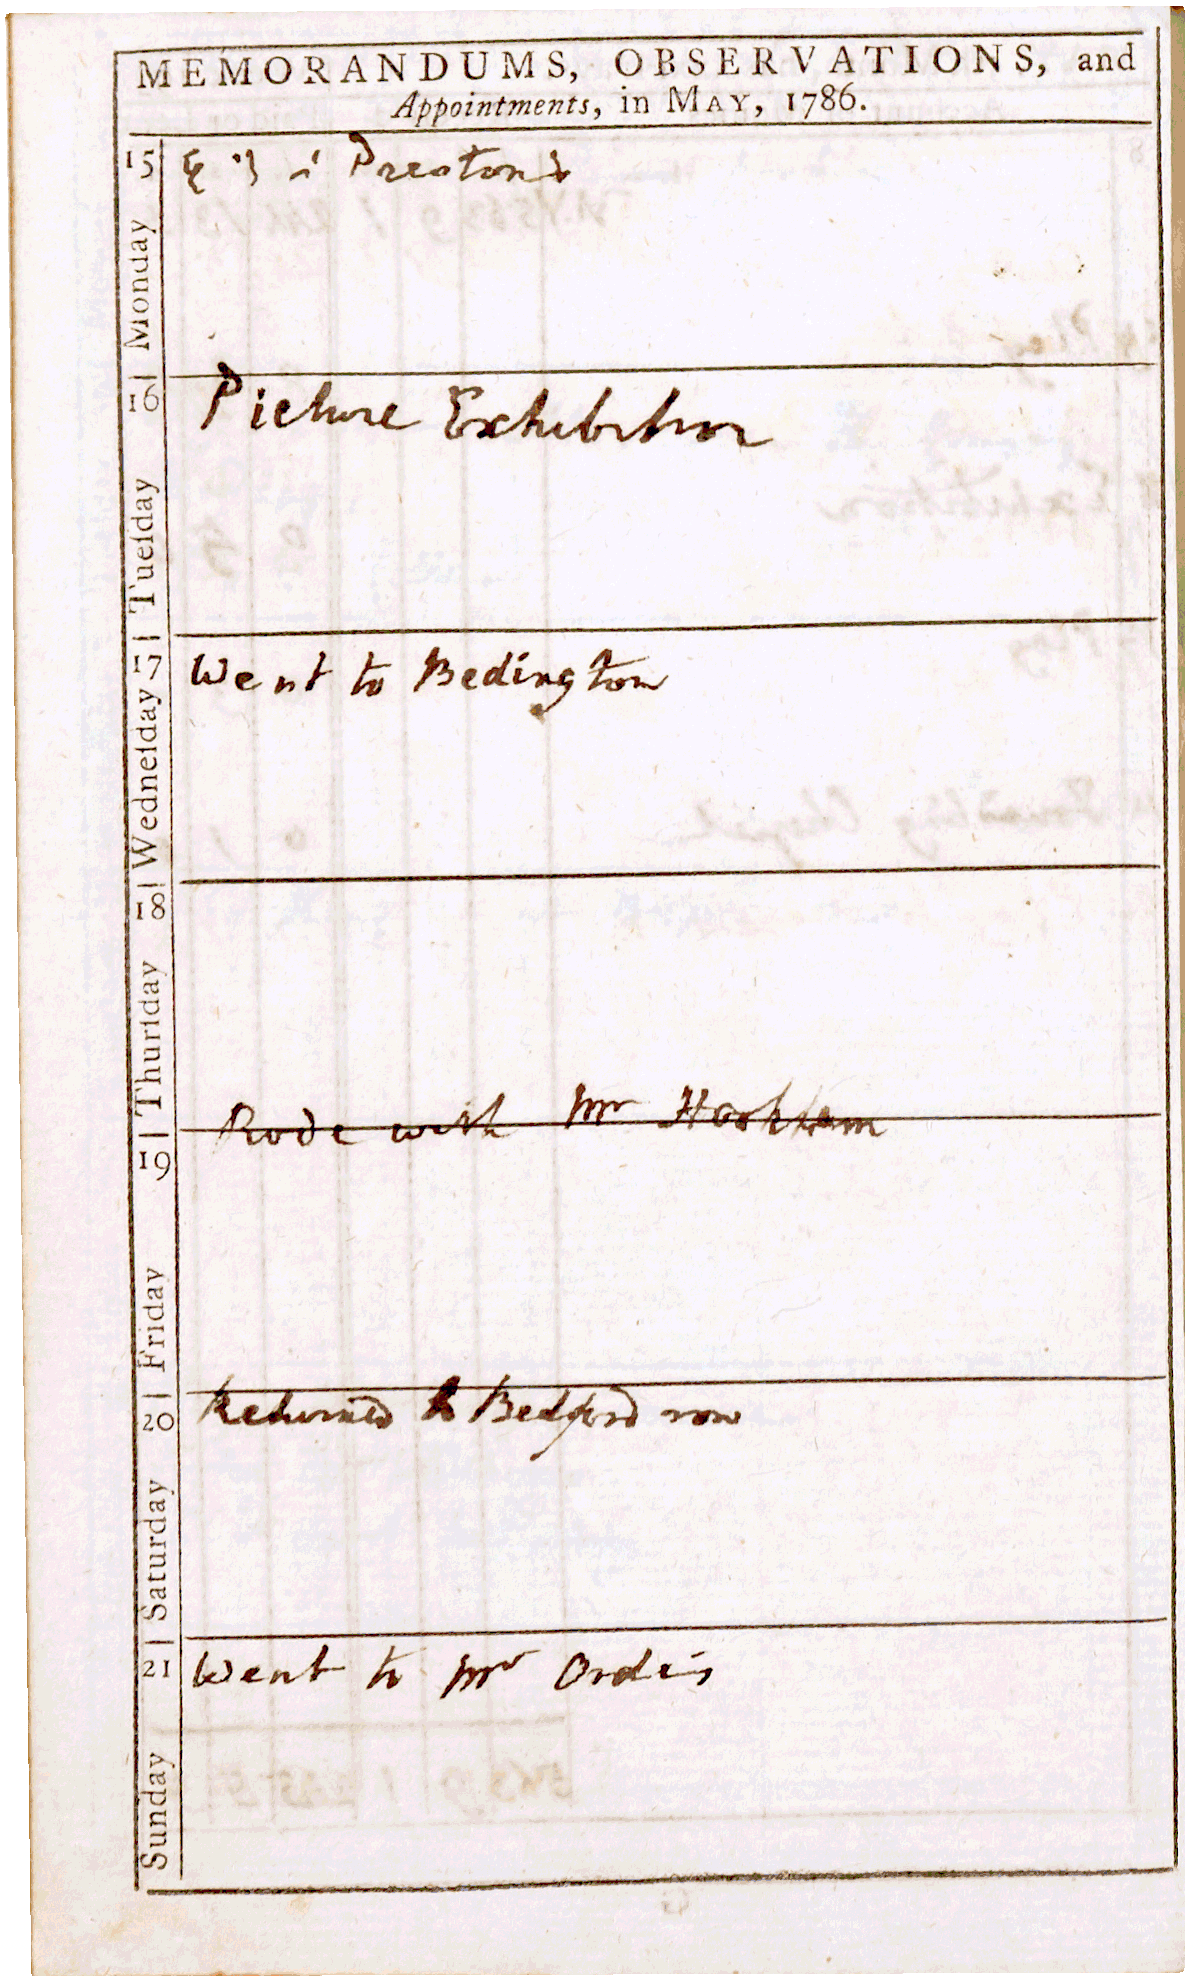 MEMORANDUMS, OBSERVATIONS, and
Appointments, in MAY, 1786.
15 Monday
Preston's
16 Tueſday
Picture Exhibition
17 Wedneſday
Went to Bedington
18 Thurſday
Rode with Mr
19 Friday
20 Saturday
Returned to Bedford row
21 Sunday
Went to Mr Ordes